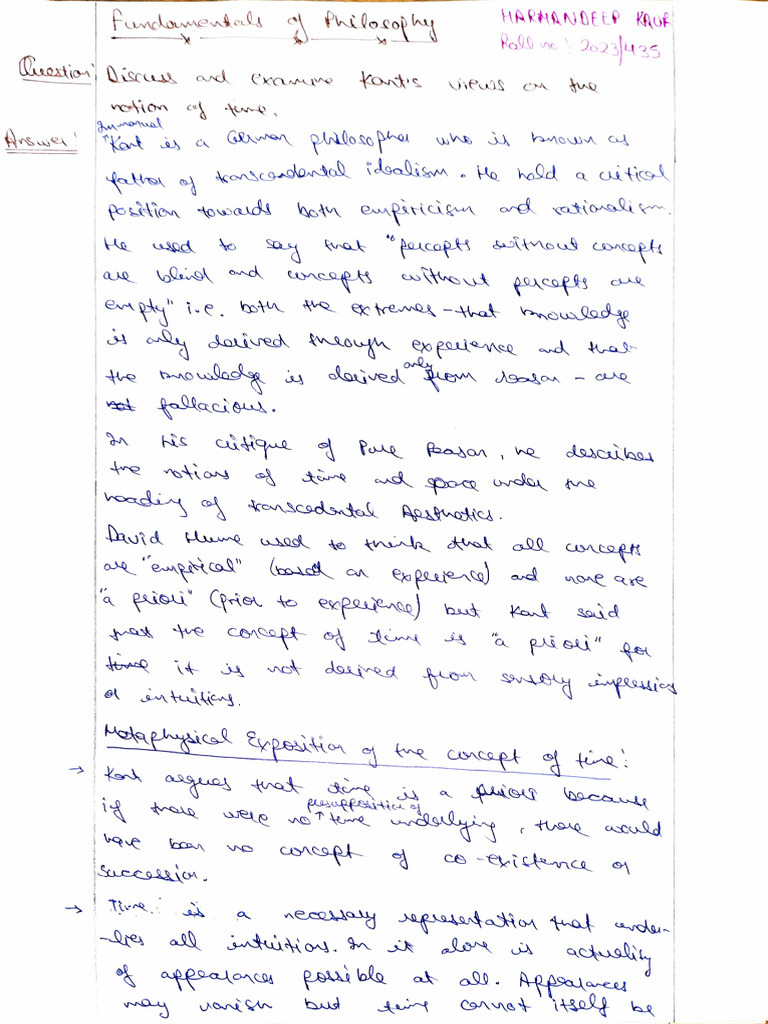 Fundamentals of Philosophy
HARMANDEEP KAUR
Roll no: 2023/435
Question: Discuss and examine Kant's views on the
notion of time.
Answer: Immanual
Kant is a German philosopher who is known as
father of transcendental idealism. He hold a critical
position towards both empiricism and rationalism.
He used to say that "percepts without concepts
are blind and concepts without percepts are
empty" i.e. both the extremes - that knowledge
is only derived through experience and that
the knowledge is derived only from reason - are
not fallacious.
In his critique of Pure Reason, he describes
the notions of time and space under the
heading of transcedental Aesthetics.
David Hume used to think that all concepts
are "empirical" (based on experience) and none are
"a priori" (prior to experience) but Kant said
that the concept of time is "a priori" for
time it is not derived from sensory impressions
or intuitions.
Metaphysical Exposition of the concept of time:
→ Kant argues that time is a priori because
if there were no presupposition of time underlying, there would
have been no concept of co-existence or
succession.
→ Time is a necessary representation that under-
-lies all intuitions. In it alone is actuality
of appearances possible at all. Appearances
may vanish but time cannot itself be